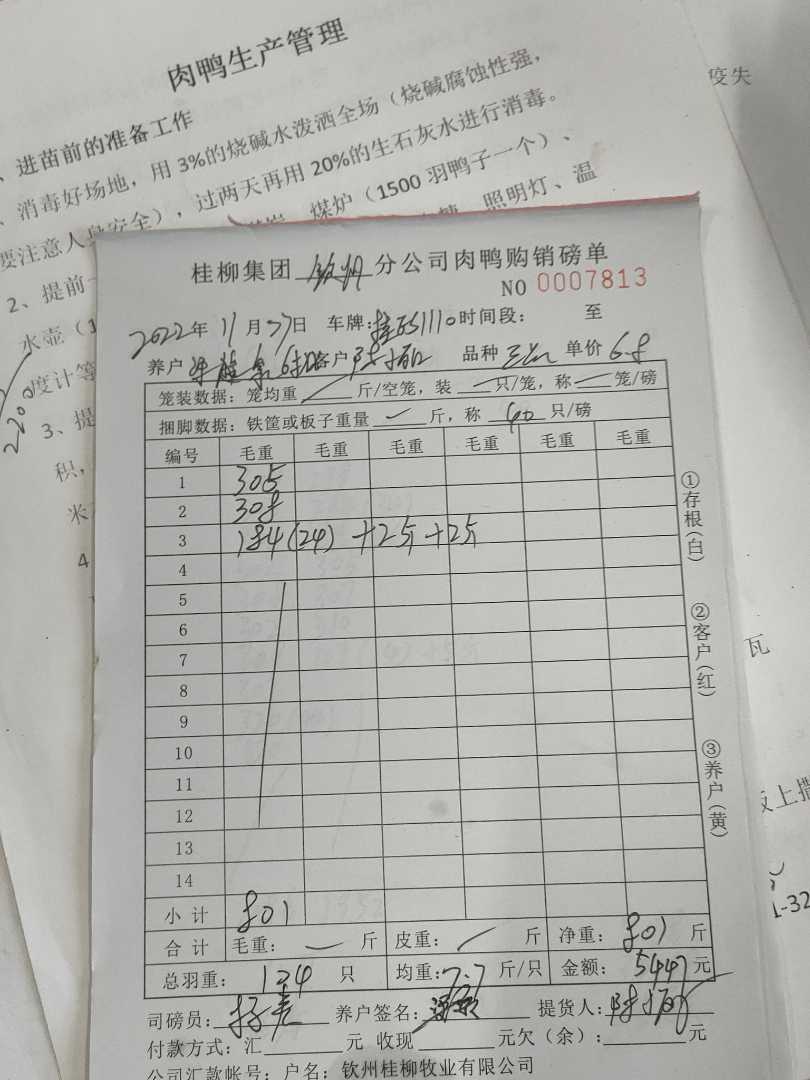 肉鸭生产管理
、进苗前的准备工作
、消毒好场地，用 3%的烧碱水泼洒全场（烧碱腐蚀性强，
要注意人身安全），过两天再用 20%的生石灰水进行消毒。
2、提前 煤炉（1500 羽鸭子一个）、
水壶（1 照明灯、温
度计等
3、提
积，
米
4
2200
疫失
瓦
板上撒
1-32
桂柳集团 钦州 分公司肉鸭购销磅单
NO 0007813
2022 年 11 月 27 日 车牌: 桂 1110 时间段： 至
养户 客户 品种 单价 6.8
笼装数据：笼均重 斤/空笼，装 一 只/笼，称 一 笼/磅
捆脚数据：铁筐或板子重量 一 斤，称 50 只/磅
编号 毛重 毛重 毛重 毛重 毛重 毛重
1 305
2 308
3 184(24) +2斤+2斤
4
5
6
7
8
9
10
11
12
13
14
小 计 801
合 计 毛重： 一 斤 皮重： 斤 净重： 801 斤
总羽重： 124 只 均重： 7.7 斤/只 金额： 5447 元
司磅员： 养户签名： 提货人：
付款方式：汇 元 收现 元欠（余）： 元
公司汇款帐号：户名：钦州桂柳牧业有限公司
①存根(白)
②客户(红)
③养户(黄)